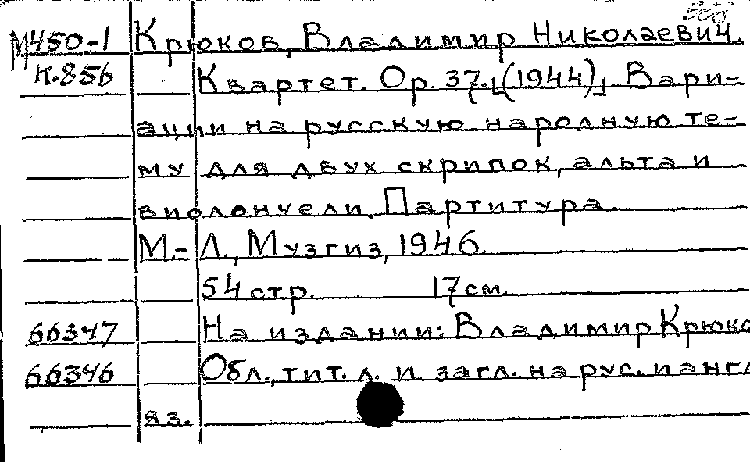 М450-1 Крюков, Владимир Николаевич.
К.856 Квартет. Ор. 37. (1944), Вари-
ации на русскую народную те-
му для двух скрипок, альта и
виолончели. Партитура.
М.-Л., Музгиз, 1946.
54 стр. 17 см.
66347 На издании: Владимир Крюко
66346 Обл., тит. л. и загл. на рус. и англ
яз.